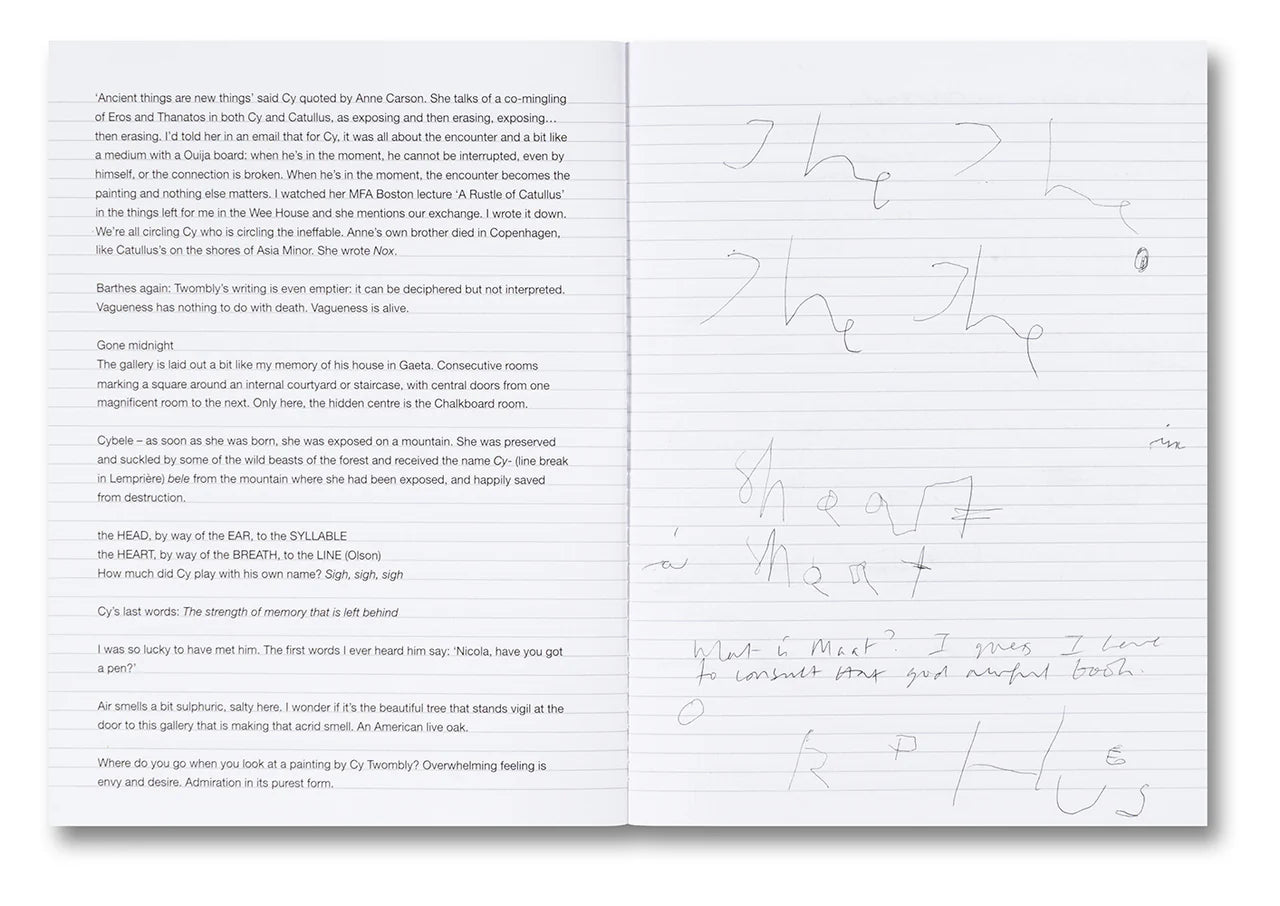 ‘Ancient things are new things’ said Cy quoted by Anne Carson. She talks of a co-mingling
of Eros and Thanatos in both Cy and Catullus, as exposing and then erasing, exposing…
then erasing. I’d told her in an email that for Cy, it was all about the encounter and a bit like
a medium with a Ouija board: when he’s in the moment, he cannot be interrupted, even by
himself, or the connection is broken. When he’s in the moment, the encounter becomes the
painting and nothing else matters. I watched her MFA Boston lecture ‘A Rustle of Catullus’
in the things left for me in the Wee House and she mentions our exchange. I wrote it down.
We’re all circling Cy who is circling the ineffable. Anne’s own brother died in Copenhagen,
like Catullus’s on the shores of Asia Minor. She wrote Nox.
Barthes again: Twombly’s writing is even emptier: it can be deciphered but not interpreted.
Vagueness has nothing to do with death. Vagueness is alive.
Gone midnight
The gallery is laid out a bit like my memory of his house in Gaeta. Consecutive rooms
marking a square around an internal courtyard or staircase, with central doors from one
magnificent room to the next. Only here, the hidden centre is the Chalkboard room.
Cybele – as soon as she was born, she was exposed on a mountain. She was preserved
and suckled by some of the wild beasts of the forest and received the name Cy- (line break
in Lemprière) bele from the mountain where she had been exposed, and happily saved
from destruction.
the HEAD, by way of the EAR, to the SYLLABLE
the HEART, by way of the BREATH, to the LINE (Olson)
How much did Cy play with his own name? Sigh, sigh, sigh
Cy’s last words: The strength of memory that is left behind
I was so lucky to have met him. The first words I ever heard him say: ‘Nicola, have you got
a pen?’
Air smells a bit sulphuric, salty here. I wonder if it’s the beautiful tree that stands vigil at the
door to this gallery that is making that acrid smell. An American live oak.
Where do you go when you look at a painting by Cy Twombly? Overwhelming feeling is
envy and desire. Admiration in its purest form.
The The
The The
in
a
What is Maat? I guess I have
to consult that god awful book.
O R P H E U S